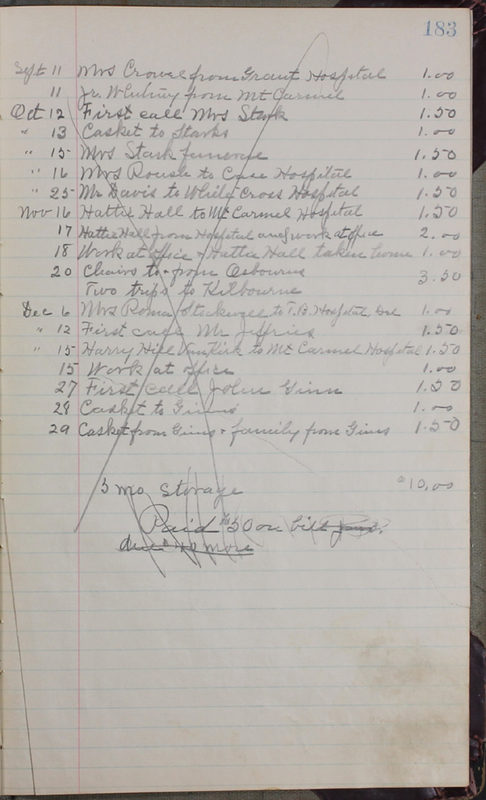 183
Sept 11 Mrs Crowel from Grant Hospital 1.00
11 Jr. Whitney from Mt Carmel 1.00
Oct 12 First call Mrs Stark 1.50
" 13 Casket to Starks 1.00
" 15 Mrs Stark funeral 1.50
" 16 Mrs Roush to Case Hospital 1.00
" 25 Mr Davis to White Cross Hospital 1.50
Nov 16 Hattie Hall to Mt Carmel Hospital 1.50
17 Hattie Hall from Hospital and work at office 2.00
18 Work at office & Hattie Hall taken home 1.00
20 Chairs to & from Osbourne 3.50
Two trips to Kilbourne
Dec 6 Mrs Roman to T.B. Hospital, Del 1.00
" 12 First call Mr Jeffries 1.50
" 15 Harry Hill to Mt Carmel Hospital 1.50
15 Work at office 1.00
27 First call John Ginn 1.50
28 Casket to Ginns 1.00
29 Casket from Ginns & family from Ginns 1.50
3 mo storage $10.00
Paid $30 on bill
due more